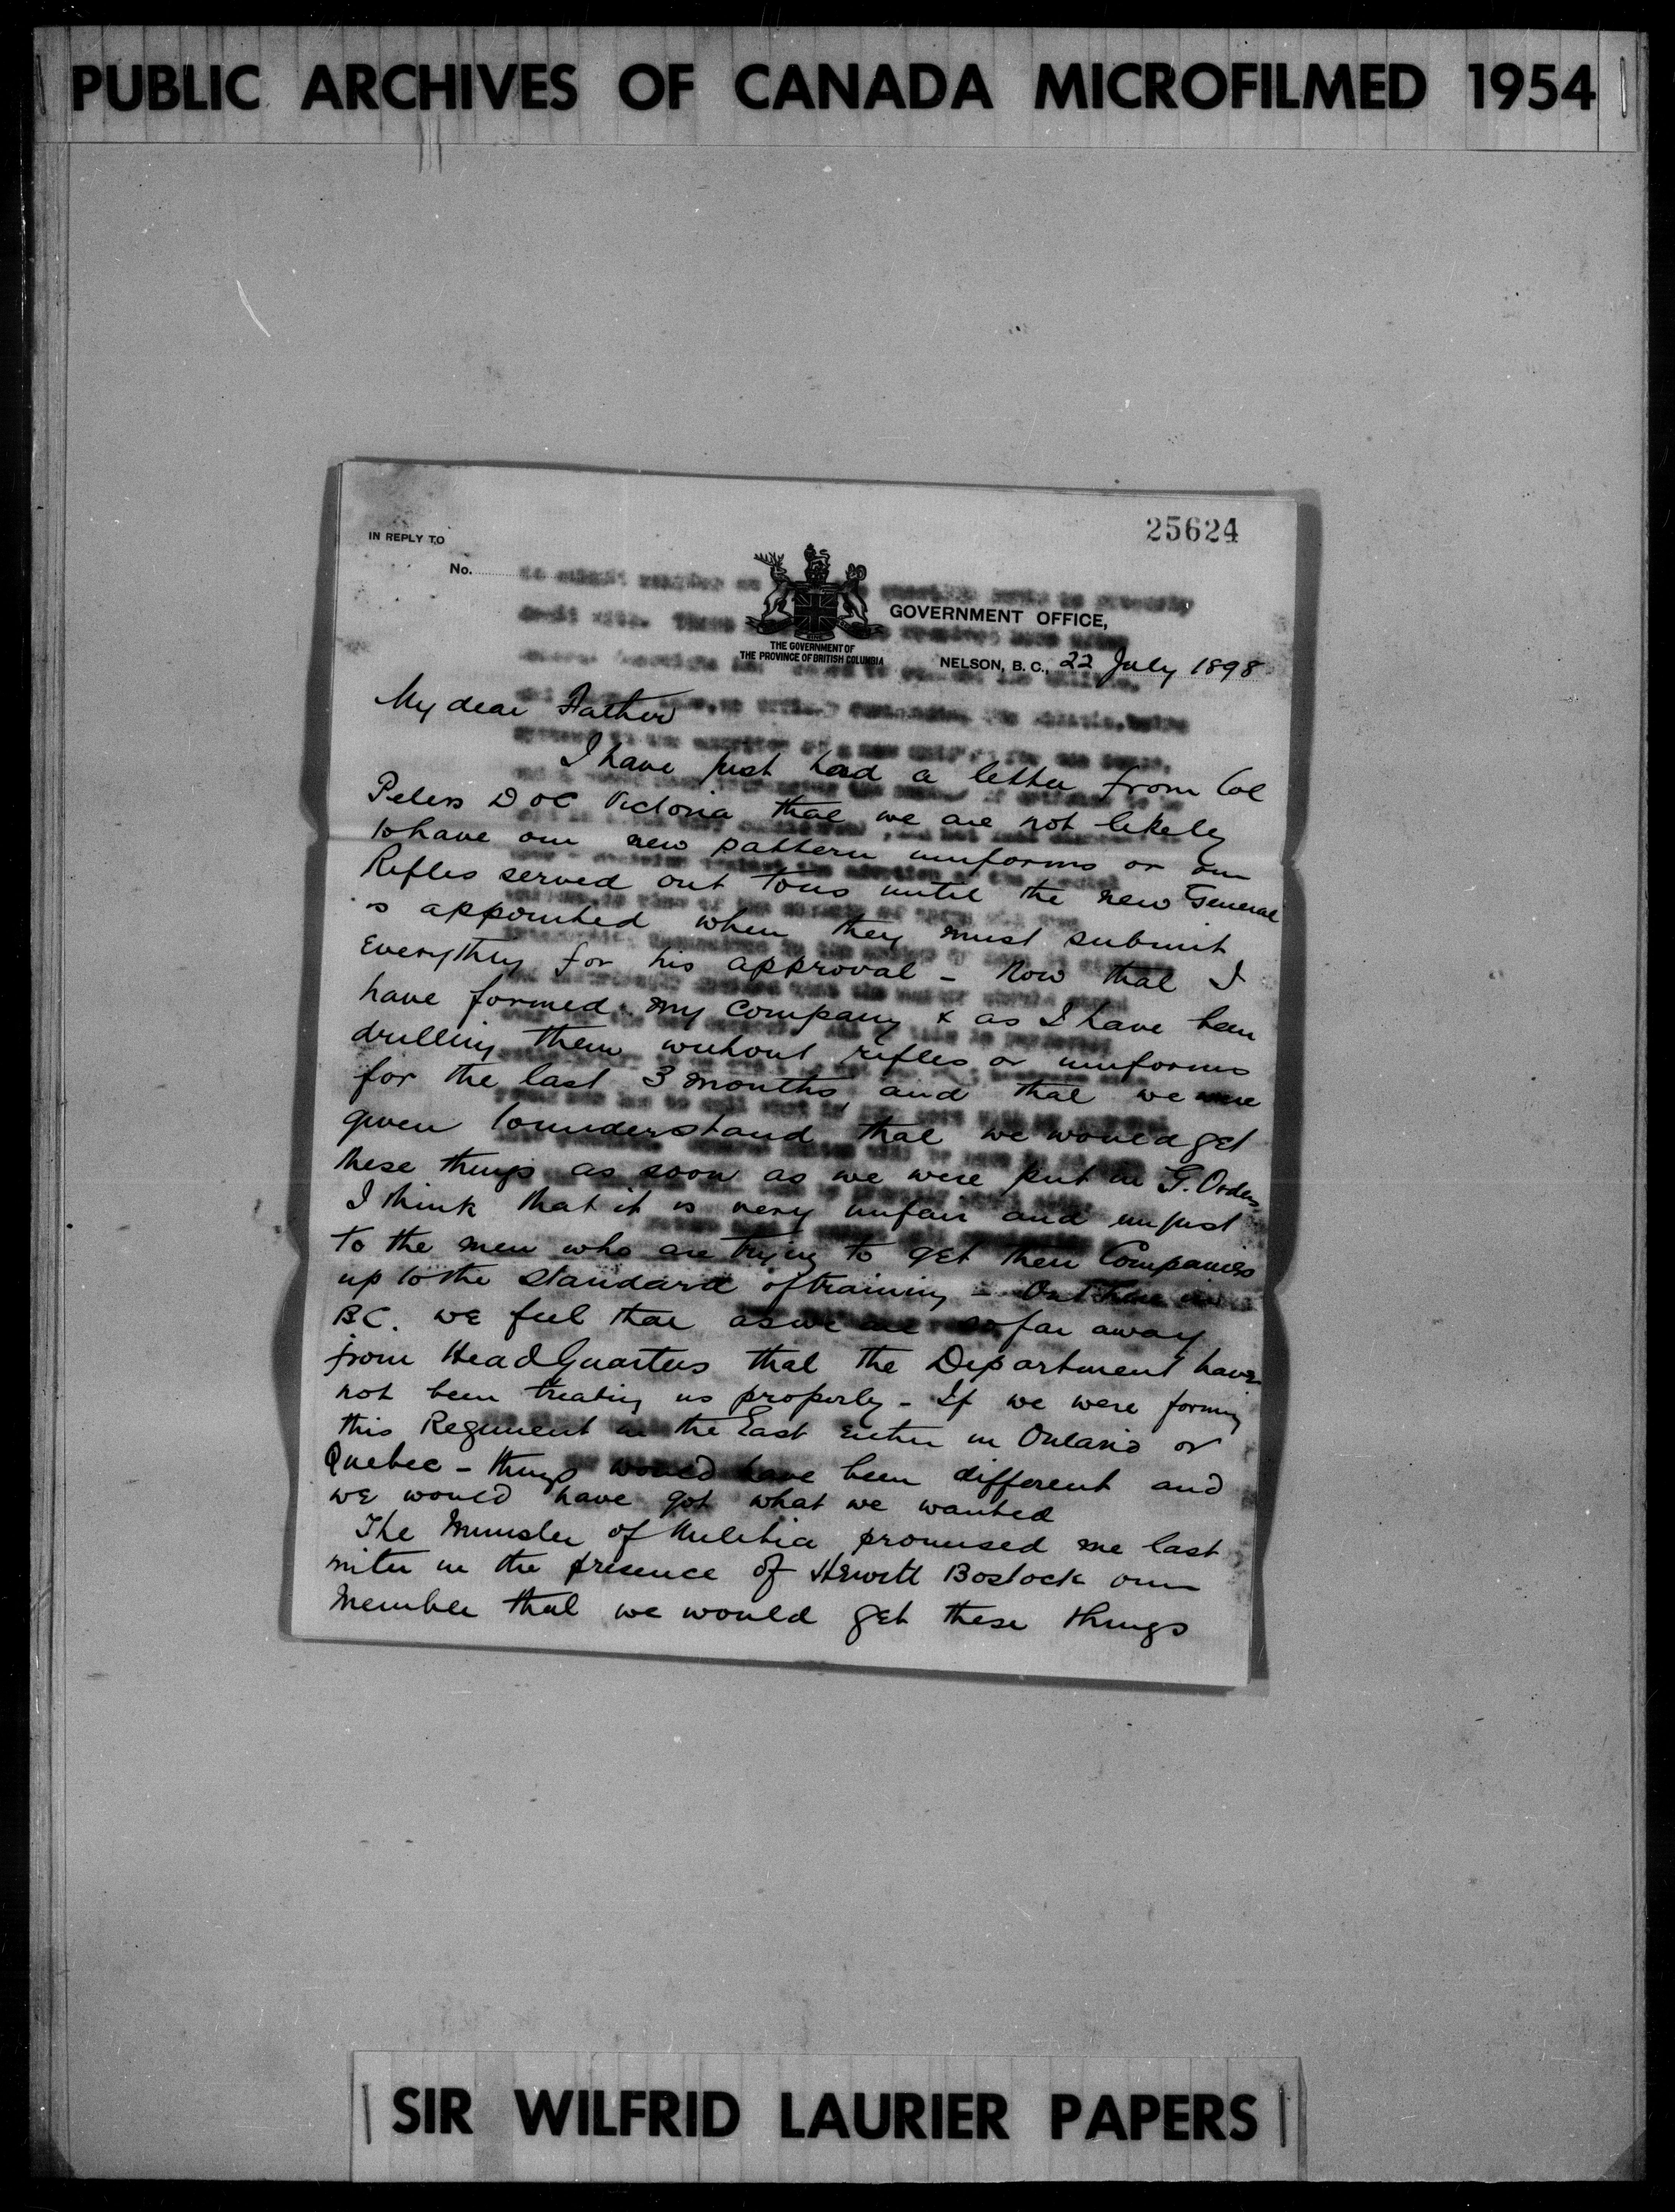 PUBLIC ARCHIVES OF CANADA MICROFILMED 1954
25624
IN REPLY TO
No.
GOVERNMENT OFFICE,
THE GOVERNMENT OF
THE PROVINCE OF BRITISH COLUMBIA
NELSON, B. C., 22 July 1898
My dear Father
I have just had a letter from Col
Peters DOC Victoria that we are not likely
to have our new pattern uniforms or our
Rifles served out to us until the new General
is appointed when they must submit
Everything for his approval - Now that I
have formed my Company & as I have been
drilling them without rifles or uniforms
for the last 3 months and that we were
given to understand that we would get
these things as soon as we were put in G. Orders
I think that it is very unfair and unjust
to the men who are trying to get their Companies
up to the standard of training - Out here in
BC. we feel that as we are so far away
from Head Quarters that the Department have
not been treating us properly - If we were forming
this Regiment in the East Either in Ontario or
Quebec - things would have been different and
we would have got what we wanted
The Minister of Militia promised me last
in the presence of Hewitt Bostock our
Member that we would get these things
SIR WILFRID LAURIER PAPERS